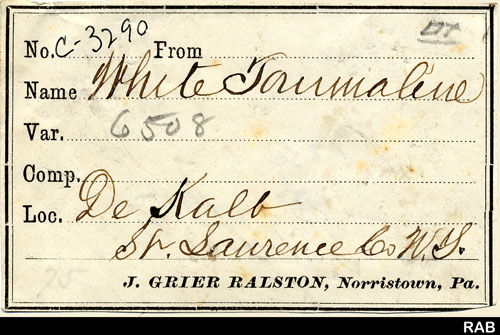 No. C-3290 From
Name White Tourmaline
Var. 6508
Comp.
Loc. De Kalb
St. Lawrence Co N.Y.
75
J. GRIER RALSTON, Norristown, Pa.
RAB